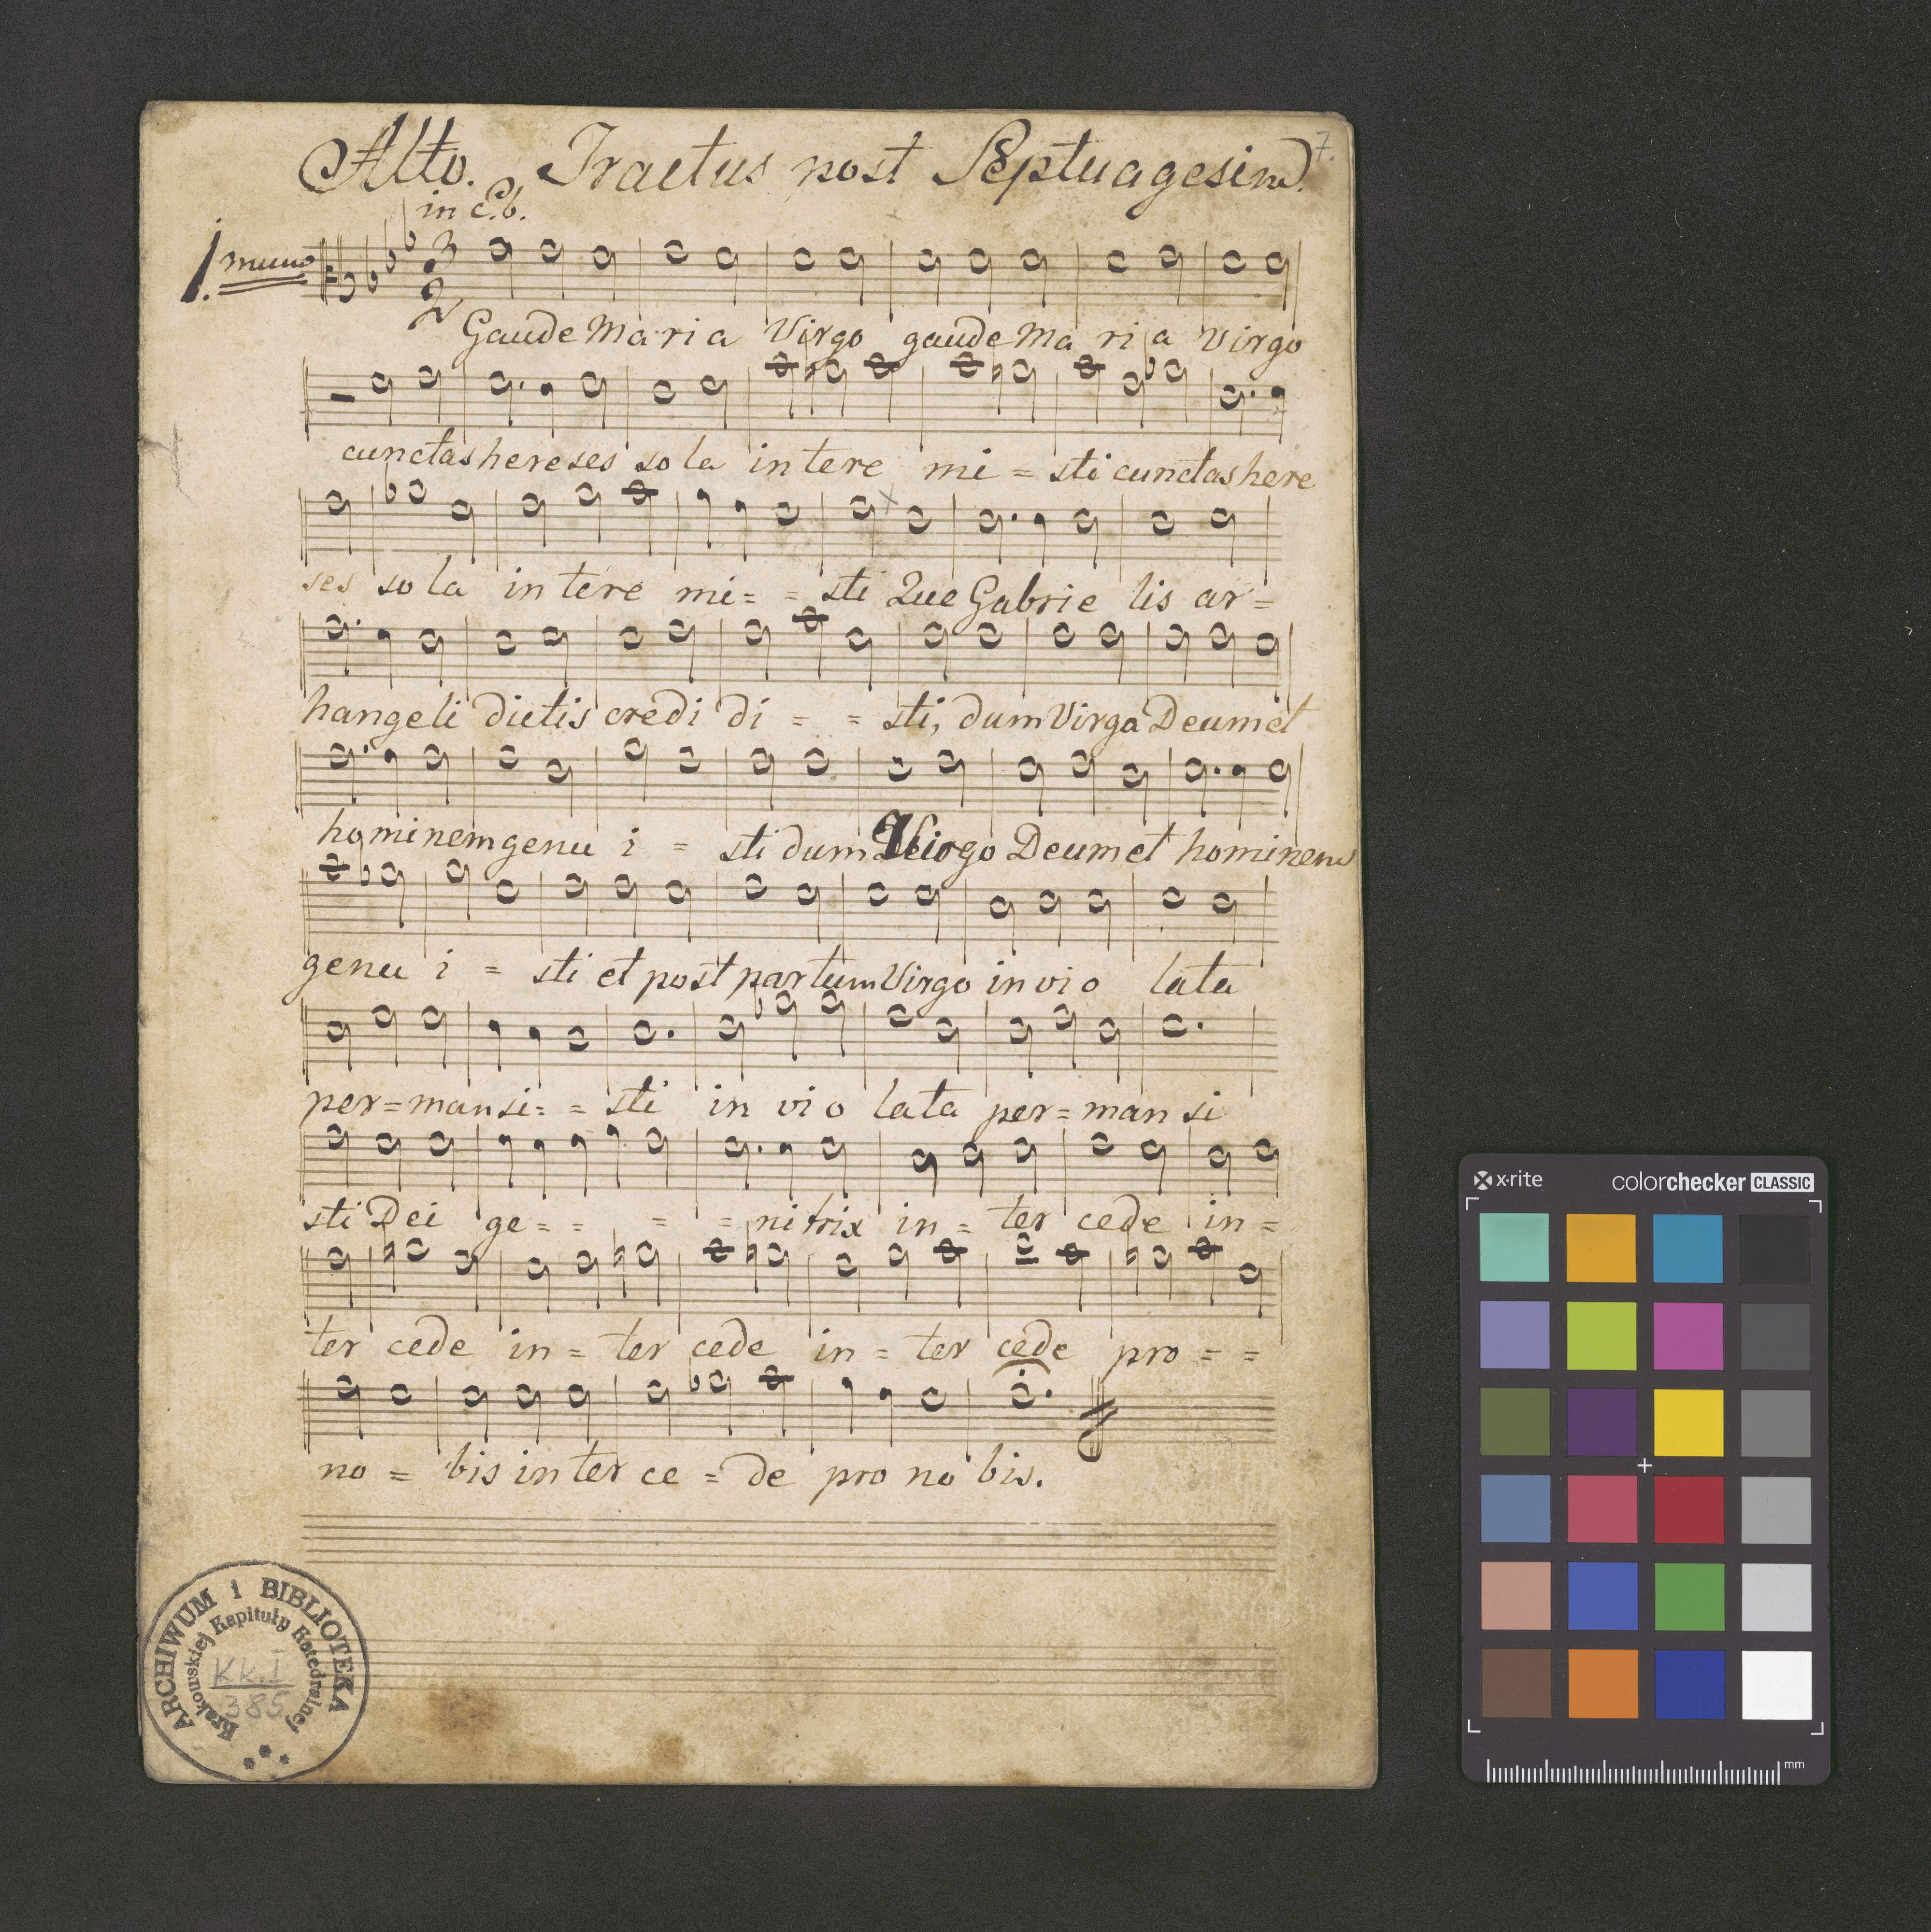 Alto. Tractus post Septuagesim.
7.
in c.b.
1.mum
3
2
Gaude Maria Virgo gaude Ma ri a Virgo
cunctas hereses sola in tere mi = sti cunctas here
ses sola in tere mi = = sti Que Gabrie lis ar =
hangeli dictis credi di = = sti, dum Virgo Deum et
hominem genu i = sti dum Virgo Deum et hominem
genu i = sti et post partum Virgo in vi o lata
per = man si = = sti in vi o lata per = man si
sti Dei ge = = = = nitrix in = ter cede in =
ter cede in = ter cede in = ter cede pro = =
no = bis in ter ce = de pro no bis.
ARCHIWUM I BIBLIOTEKA
Krakowskiej Kapituły Katedralnej
Kk.I
385
x·rite colorchecker CLASSIC
mm